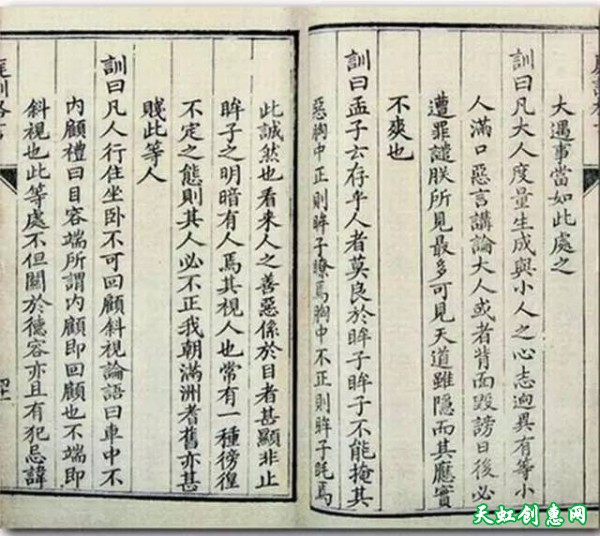 大遇事當如此處之
訓曰凡大人度量生成與小人之心志迥異有等小
人滿口惡言講論大人或者背面毀謗日後必
遭罪譴朕所見最多可見天道雖隱而其應實
不爽也
訓曰孟子云存乎人者莫良於眸子眸子不能掩其
惡胸中正則眸子瞭焉胸中不正則眸子眊焉
此誠然也看來人之善惡係於目者甚顯非止
眸子之明暗有人焉其視人也常有一種徬徨
不定之態則其人必不正我朝滿洲耆舊亦甚
賤此等人
訓曰凡人行住坐卧不可回顧斜視論語曰車中不
內顧禮曰目容端所謂內顧即回顧也不端即
斜視也此等處不但關於德容亦且有犯忌諱
庭訓格言
天虹创惠网